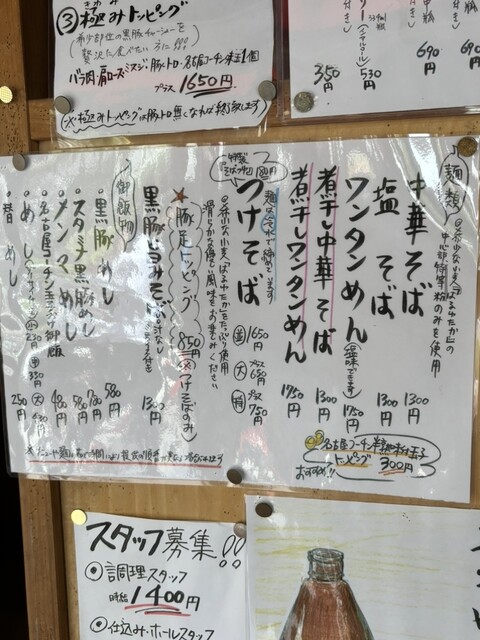 ③極みトッピング
希少部位の黒豚チャーシューを
贅沢に食べたい方に!!!
バラ肉・肩ロース・ミスジ・豚トロ・名古屋コーチン味玉1個
プラス 1650円
※極みトッピングは豚トロ無くなれば終了致します
350円
530円
690円
690円
麺類
中華そば 1300円
塩そば 1300円
ワンタンめん(塩味できます) 1750円
煮干し中華そば 1300円
煮干しワンタンめん 1750円
名古屋コーチン半熟味付玉子
トッピング 300円
おすすめ!!
つけそば
並 1650円
大 プラス 650円
特 プラス 750円
希少な小麦「はるゆたか」をたっぷり使用
滑らかな優しい風味をお楽しみください
豚足トッピング 850円(※つけそばのみ)
1300円
御飯物
・黒豚めし 580円
・スタミナ黒豚めし 780円
・メンマめし 580円
・名古屋コーチン玉子かけ御飯 480円
・めし
小 230円
中 330円
大 430円
・替めし 250円
スタッフ募集!!
◎調理スタッフ
時給 1400円
◎仕込み・ホールスタッフ